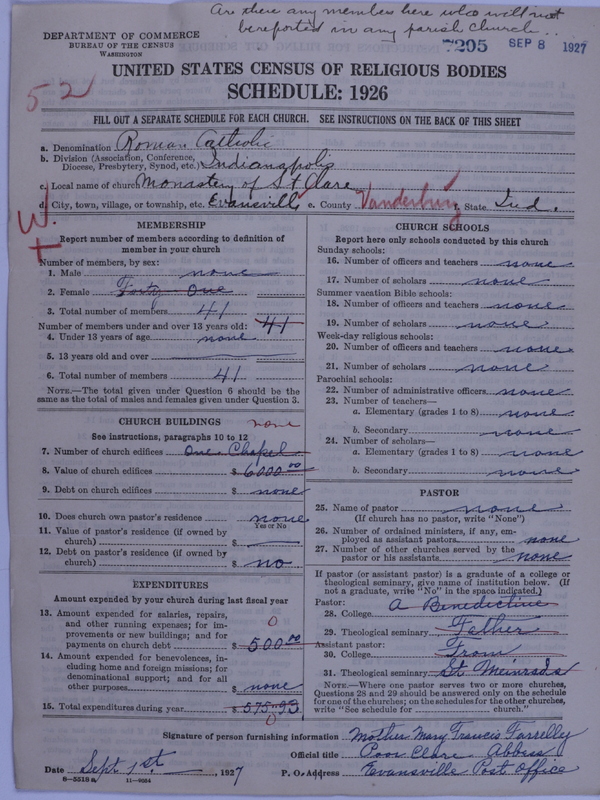 Are there any members here who will not
be reported in any parish church..
DEPARTMENT OF COMMERCE
BUREAU OF THE CENSUS
WASHINGTON
7205 SEP 8 1927
UNITED STATES CENSUS OF RELIGIOUS BODIES
52
SCHEDULE: 1926
FILL OUT A SEPARATE SCHEDULE FOR EACH CHURCH. SEE INSTRUCTIONS ON THE BACK OF THIS SHEET
a. Denomination Roman Catholic
b. Division (Association, Conference,
Diocese, Presbytery, Synod, etc.) Indianapolis
c. Local name of church Monastery of St Clare
d. City, town, village, or township, etc. Evansville e. County Vanderburg State Ind.
W.
MEMBERSHIP
Report number of members according to definition of
member in your church
Number of members, by sex:
1. Male none
2. Female Forty One
3. Total number of members 41
Number of members under and over 13 years old: 41
4. Under 13 years of age none
5. 13 years old and over
6. Total number of members 41
NOTE.—The total given under Question 6 should be
the same as the total of males and females given under Question 3.
CHURCH BUILDINGS none
See instructions, paragraphs 10 to 12
7. Number of church edifices One Chapel
8. Value of church edifices $ 6000.00
9. Debt on church edifices $ none
10. Does church own pastor's residence none
Yes or No
11. Value of pastor's residence (if owned by
church) $
12. Debt on pastor's residence (if owned by
church) $ no
EXPENDITURES
Amount expended by your church during last fiscal year
13. Amount expended for salaries, repairs,
and other running expenses; for im-
provements or new buildings; and for
payments on church debt $ 500.00
0
14. Amount expended for benevolences, in-
cluding home and foreign missions; for
denominational support; and for all
other purposes $ none
15. Total expenditures during year $ 575.93
0
CHURCH SCHOOLS
Report here only schools conducted by this church
Sunday schools:
16. Number of officers and teachers none
17. Number of scholars none
Summer vacation Bible schools:
18. Number of officers and teachers none
19. Number of scholars none
Week-day religious schools:
20. Number of officers and teachers none
21. Number of scholars none
Parochial schools:
22. Number of administrative officers none
23. Number of teachers—
a. Elementary (grades 1 to 8) none
b. Secondary none
24. Number of scholars—
a. Elementary (grades 1 to 8) none
b. Secondary none
PASTOR
25. Name of pastor none
(If church has no pastor, write "None")
26. Number of ordained ministers, if any, em-
ployed as assistant pastors none
27. Number of other churches served by the
pastor or his assistants none
If pastor (or assistant pastor) is a graduate of a college or
theological seminary, give name of institution below. (If
not a graduate, write "No" in the space indicated.)
Pastor: A Benedictine
28. College
29. Theological seminary Father
Assistant pastor:
30. College From
31. Theological seminary St. Meinrads
NOTE.—Where one pastor serves two or more churches,
Questions 28 and 29 should be answered only on the schedule
for one of the churches; on the schedules for the other churches,
write "See schedule for church"
Signature of person furnishing information Mother Mary Francis Farrelly
Official title Poor Clare Abbess
Date Sept 1st, 1927 P. O. Address Evansville Post Office
8—5518a 11—9034